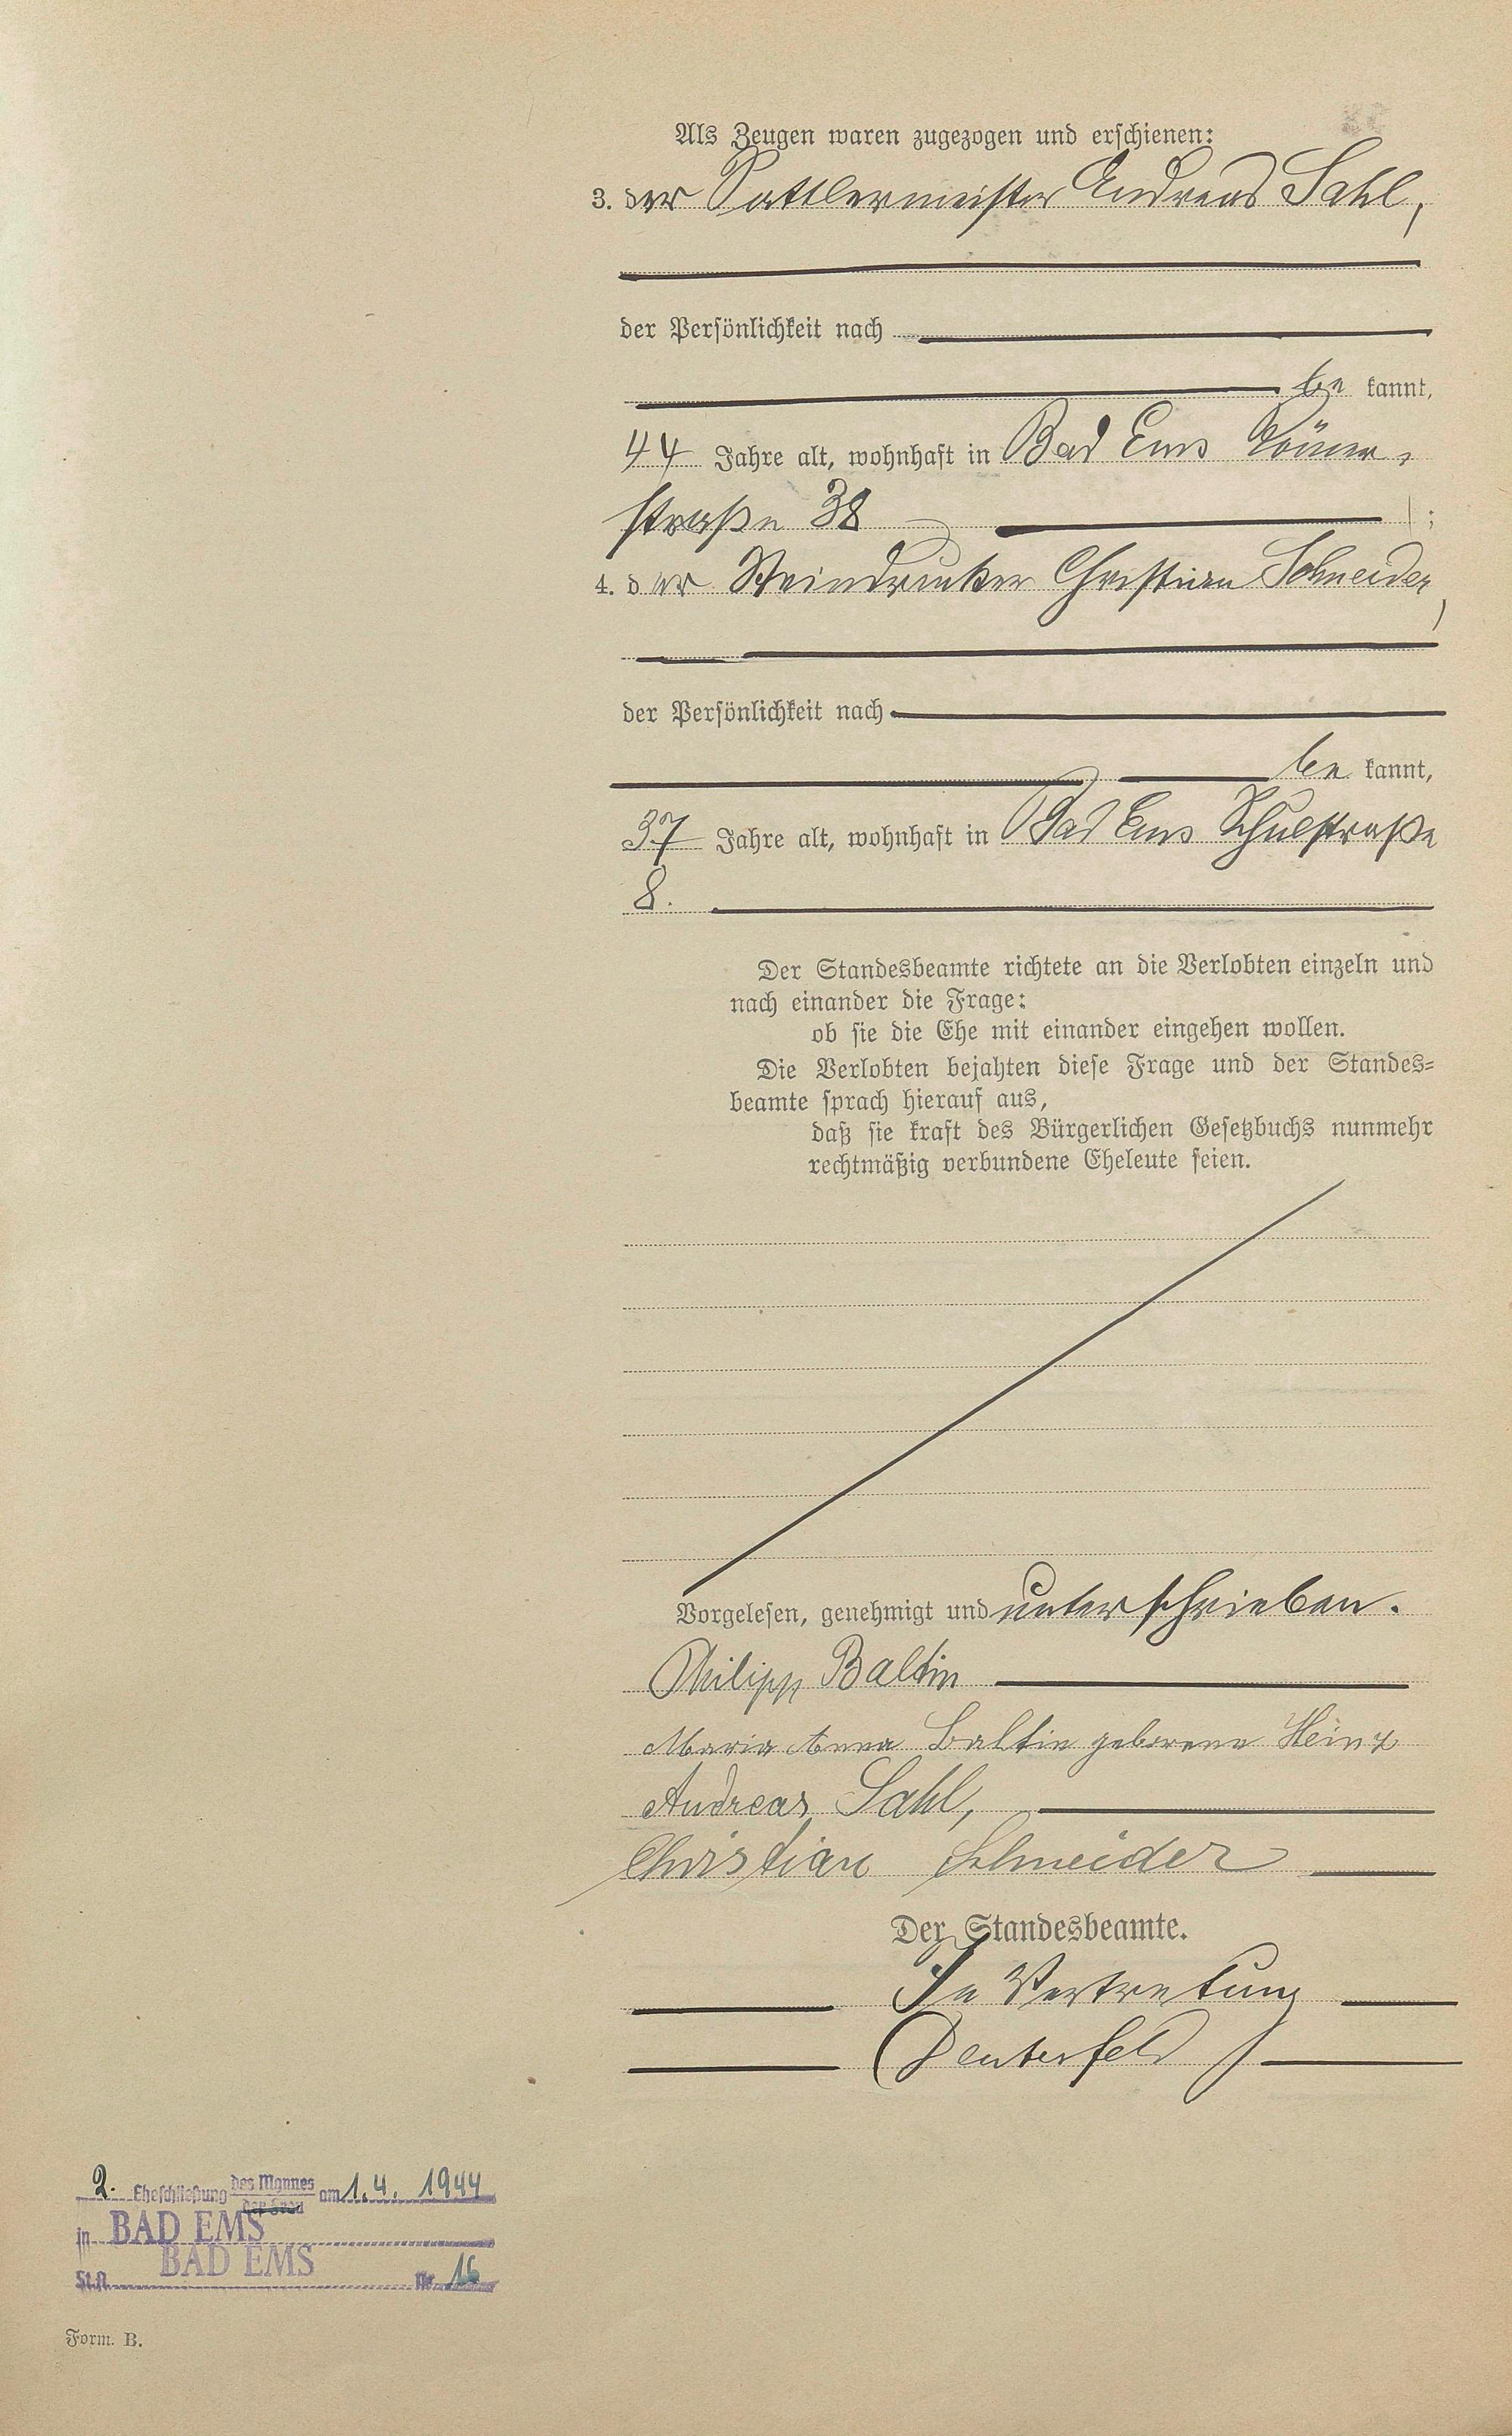 Als Zeugen waren zugezogen und erschienen:
3. der Sattlermeister Andreas Sahl,
der Persönlichkeit nach
be kannt,
44 Jahre alt, wohnhaft in Bad Ems Römer-
straße 38 ;
4. der Steindrucker Christian Schneider,
der Persönlichkeit nach
be kannt,
37 Jahre alt, wohnhaft in Bad Ems Schulstraße
8.
Der Standesbeamte richtete an die Verlobten einzeln und
nach einander die Frage:
ob sie die Ehe mit einander eingehen wollen.
Die Verlobten bejahten diese Frage und der Standes=
beamte sprach hierauf aus,
daß sie kraft des Bürgerlichen Gesetzbuchs nunmehr
rechtmäßig verbundene Eheleute seien.
Vorgelesen, genehmigt und unterschrieben.
Philipp Baltin
Maria Anna Baltin geborene Heinz
Andreas Sahl,
Christian Schneider
Der Standesbeamte.
In Vertretung
2. Eheschließung des Mannes am 1.4. 1944
der Frau
in BAD EMS
St.A. BAD EMS Nr. 16
Form. B.